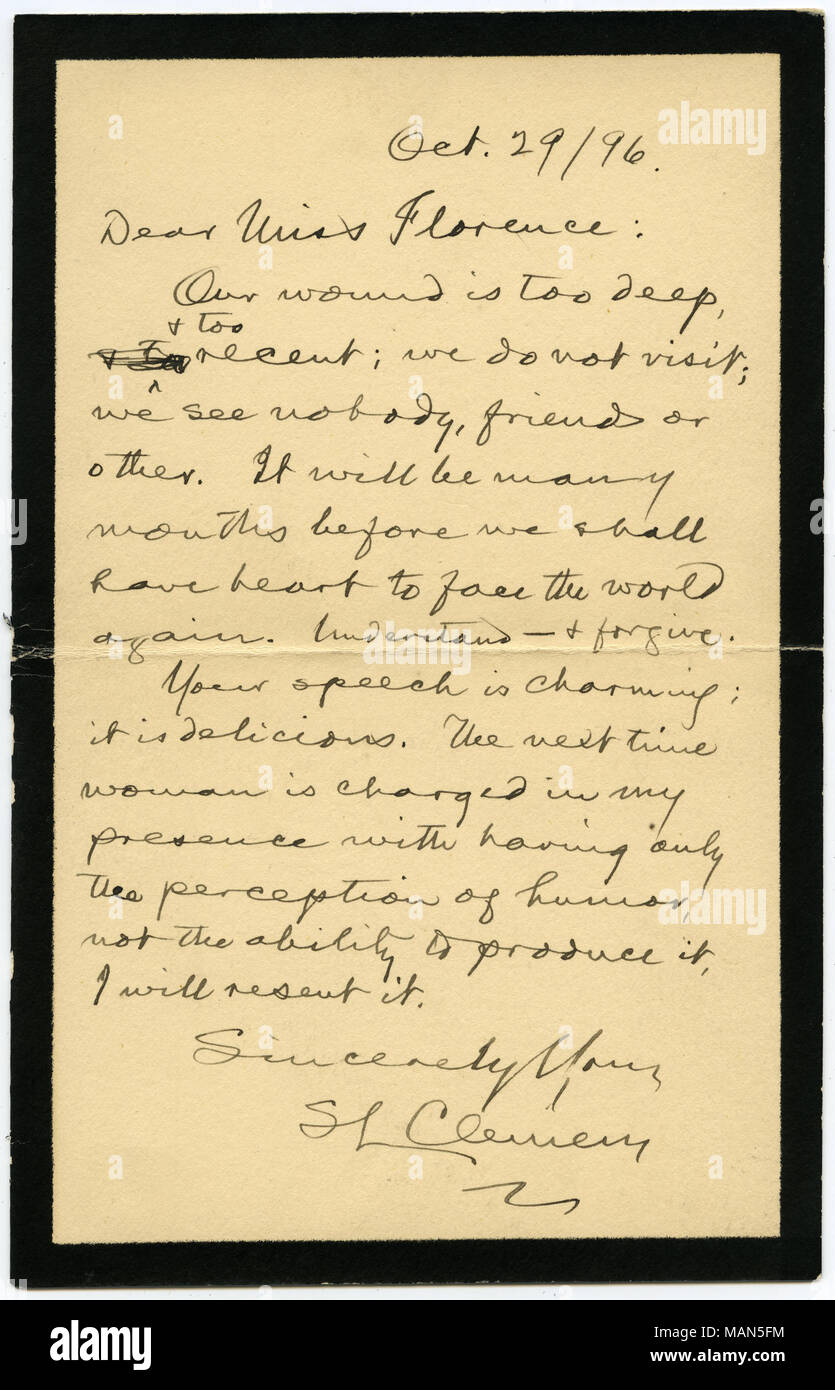 Oct. 29/96.
Dear Miss Florence:
Our wound is too deep,
& too
recent; we do not visit;
we see nobody, friend or
other. It will be many
months before we shall
have heart to face the world
again. Understand — & forgive.
Your speech is charming;
it is delicious. The next time
woman is charged in my
presence with having only
the perception of humor,
not the ability to produce it,
I will resent it.
Sincerely Yours
SL Clemens
alamy
a
alamy
Image ID: MAN5FM
www.alamy.com